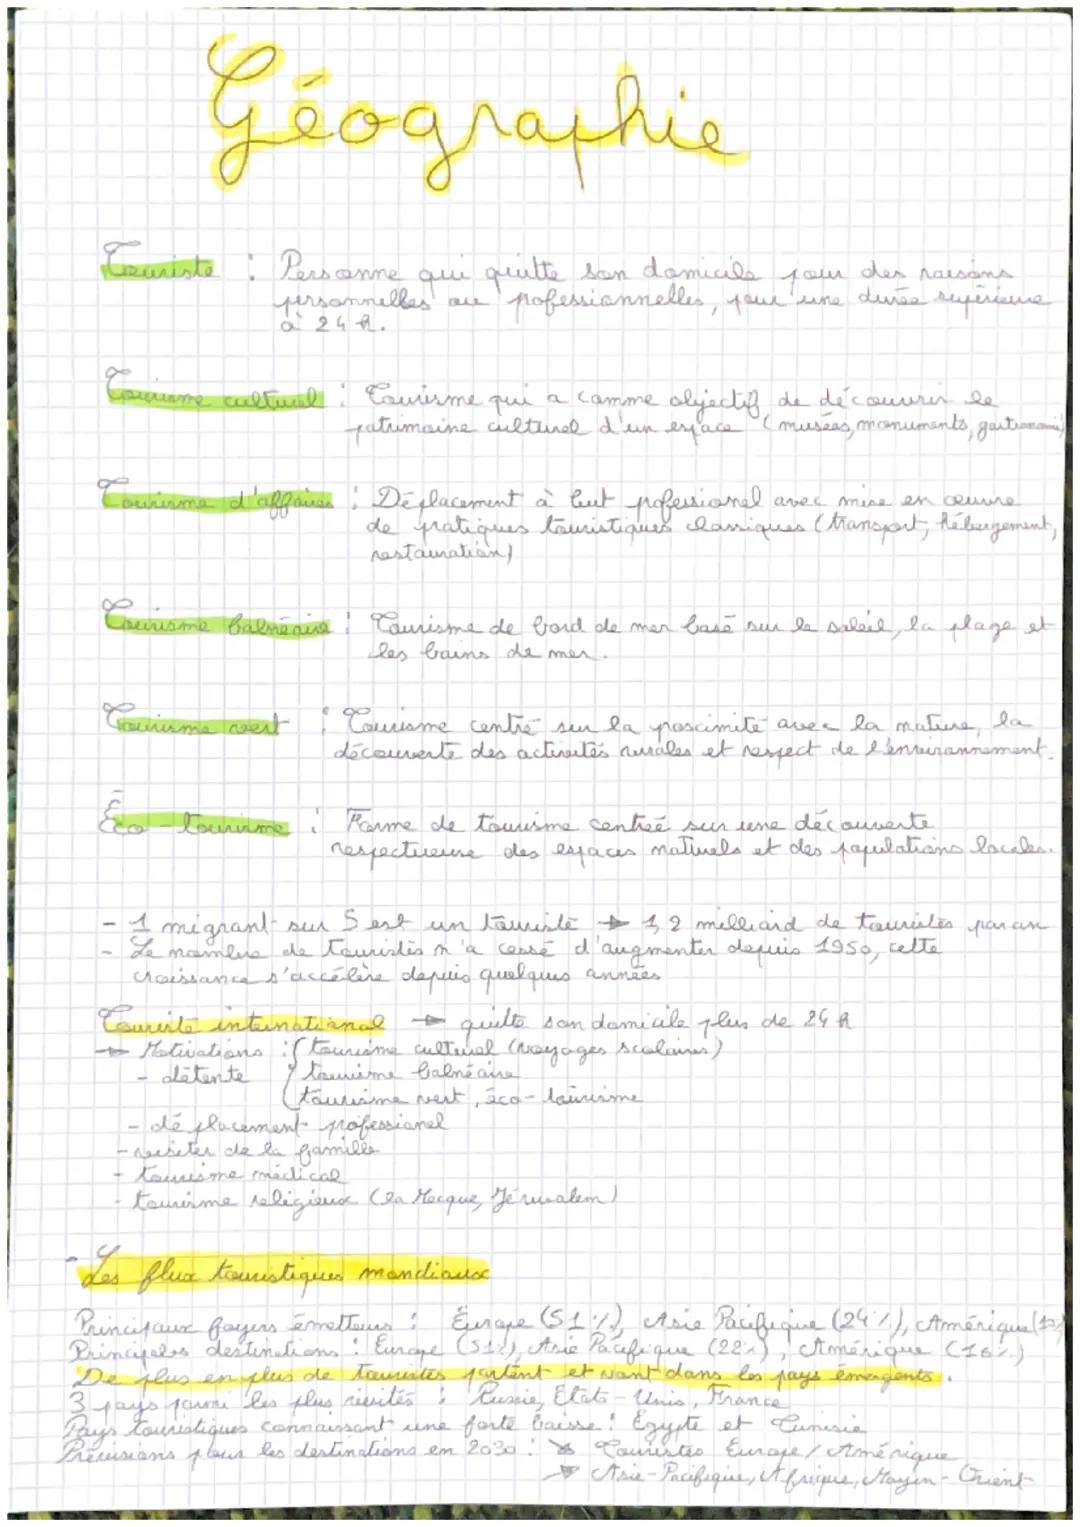 Géographie
Touriste : Personne qui quitte son domicile pour des raisons
personnelles ou professionnelles, pour une durée supérieure
à 24 h.
Tourisme culturel : Tourisme qui a comme objectif de découvrir le
patrimoine culturel d'un espace (musées, monuments, gastronomie)
Tourisme d'affaires : Déplacement à but professionel avec mise en œuvre
de pratiques touristiques classiques (transport, hébergement,
restauration)
Tourisme balnéaire : Tourisme de bord de mer basé sur le soleil, la plage et
les bains de mer.
Tourisme vert : Tourisme centré sur la proximité avec la nature, la
découverte des activités rurales et respect de l'environnement.
Éco-tourisme : Forme de tourisme centrée sur une découverte
respectueuse des espaces naturels et des populations locales.
- 1 migrant sur 5 est un touriste → 1,2 milliard de touristes par an
- Le nombre de touristes n'a cessé d'augmenter depuis 1950, cette
croissance s'accélère depuis quelques années
Touriste international → quitte son domicile plus de 24 h
→ Motivations : { tourisme culturel (voyages scolaires)
- détente { tourisme balnéaire
{ tourisme vert, éco-tourisme
- déplacement professionel
- visiter de la famille
- tourisme médical
- tourisme religieux (la Mecque, Jérusalem)
- Les flux touristiques mondiaux
Principaux foyers émetteurs : Europe (51%), Asie Pacifique (24%), Amérique
Principales destinations : Europe (51%), Asie Pacifique (22%), Amérique (16%)
De plus en plus de touristes partent et vont dans les pays émergents.
3 pays parmi les plus visités : Russie, États-Unis, France
Pays touristiques connaissant une forte baisse : Égypte et Tunisie
Prévisions pour les destinations en 2030 : ↘ Touristes Europe/Amérique
→ Asie-Pacifique, Afrique, Moyen-Orient